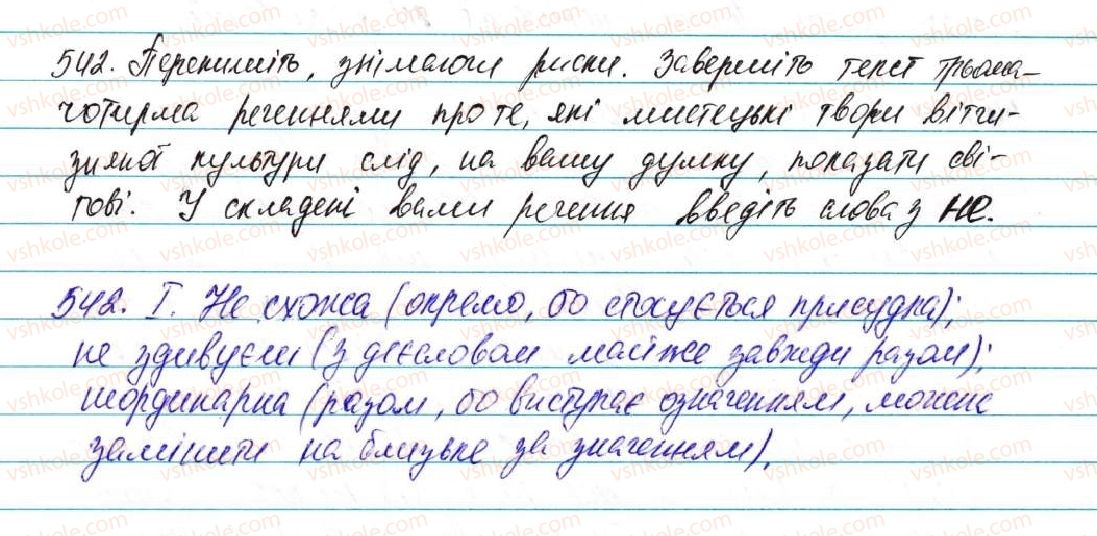 542. Перепишіть, знімаючи риски. Завершіть текст трьома-
чотирма реченнями про те, які мистецькі твори вітчи-
зняної культури слід, на вашу думку, показати сві-
тові. У складені вами речення введіть слова з не.
542. І. Не схожа (окремо, бо стосується присудка);
не здивуєш (з дієсловом майже завжди разом);
неординарна (разом, бо виступає означенням, можна
замінити на близьке за значенням).